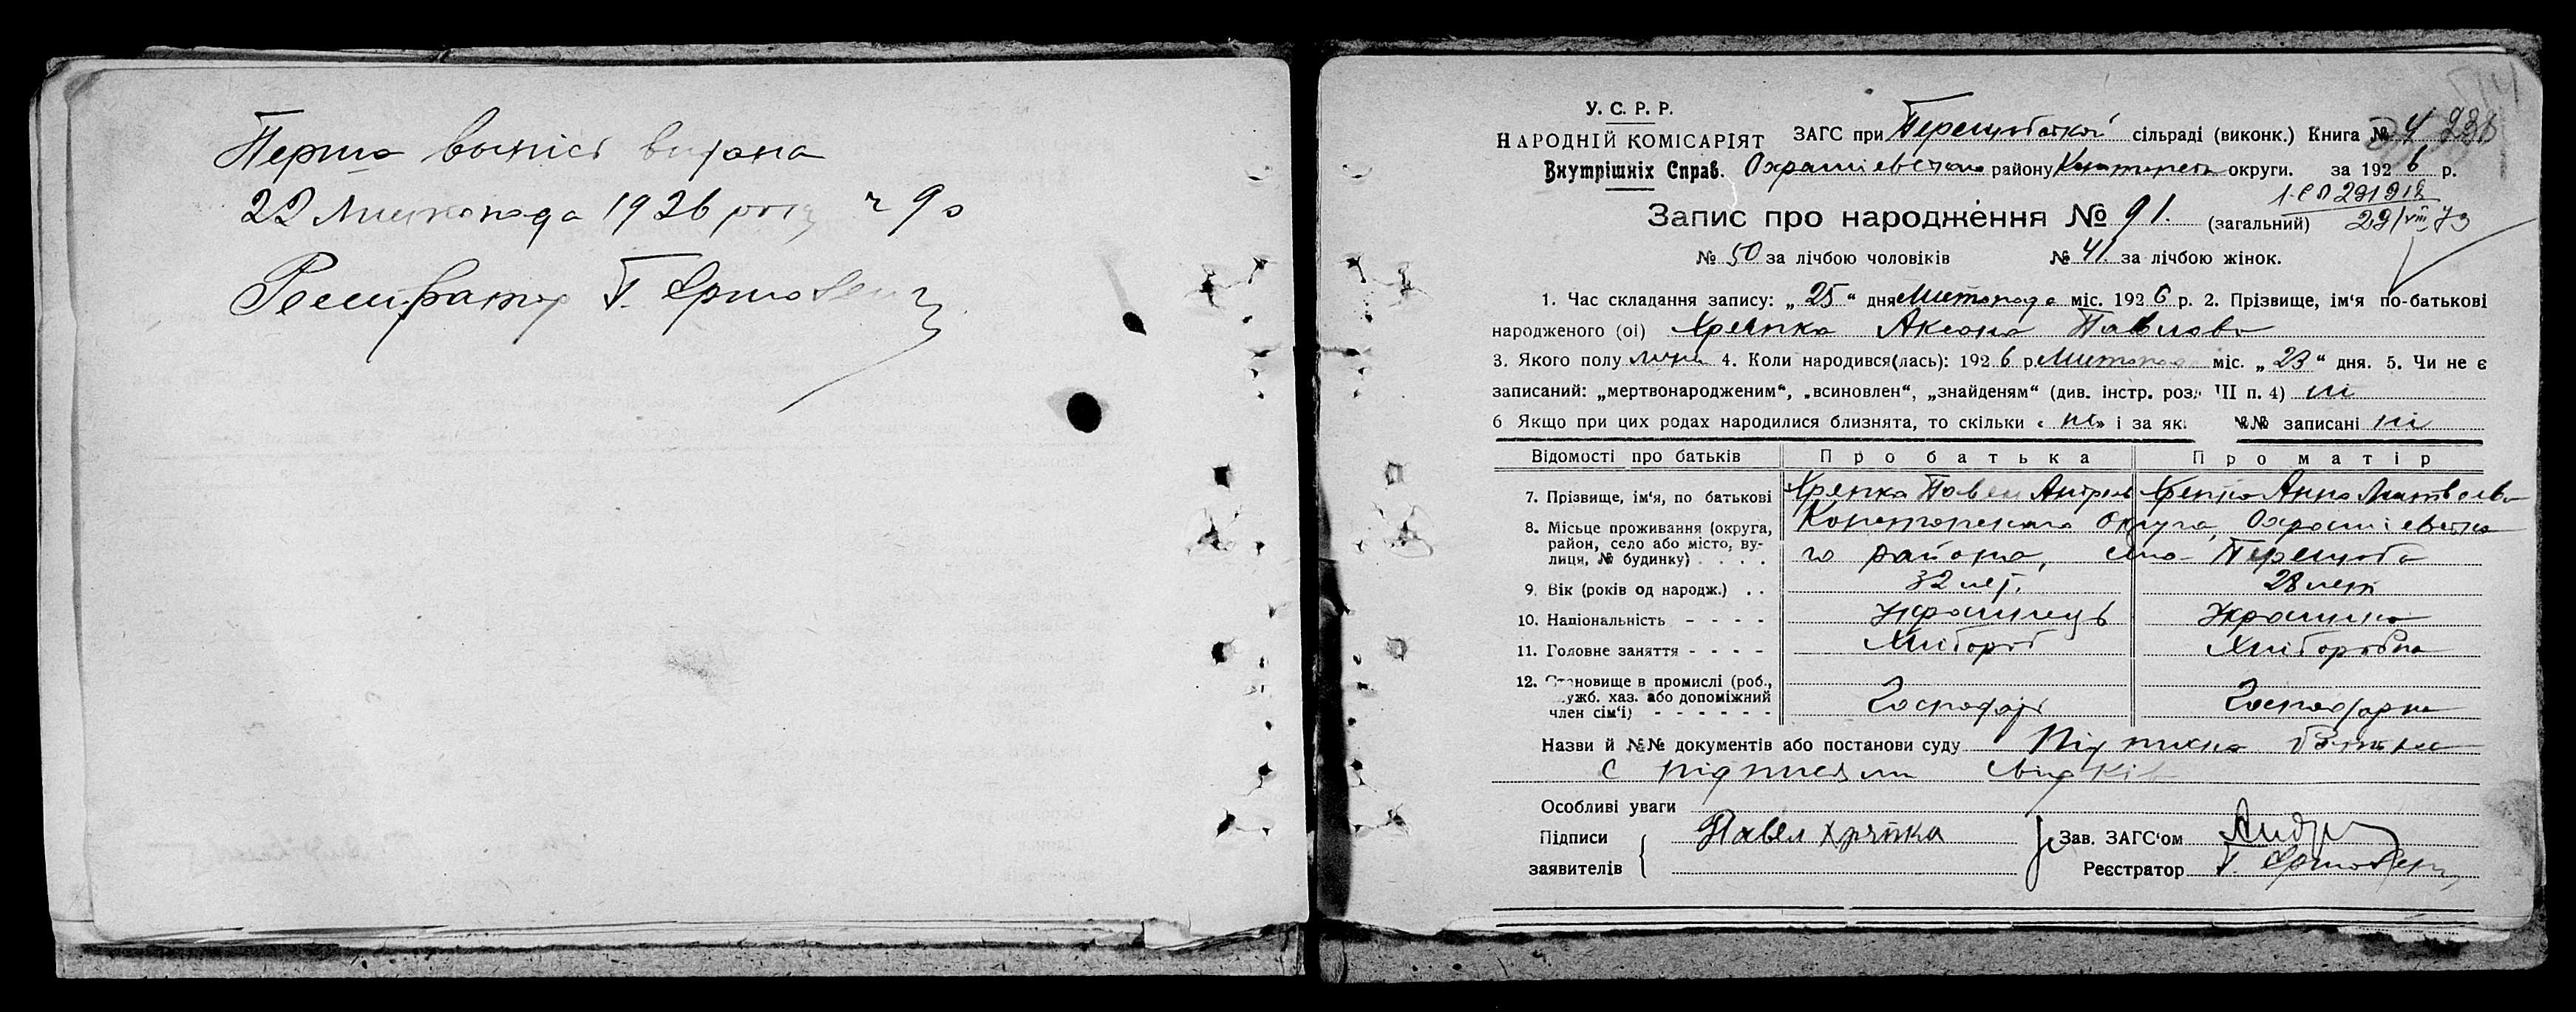 Перша выпісь видана
22 Листопада 1926 року ч 90
Реєстратор Т.
У. С. Р. Р.
НАРОДНІЙ КОМІСАРІЯТ
Внутрішніх Справ.
ЗАГС при сільраді (виконк.) Книга № 4
району округи. за 1926 р.
Запис про народження № 91. (загальний)
29/VIII 73
№ 50 за лічбою чоловіків № 41 за лічбою жінок.
1. Час складання запису: „25“ дня Листопада міс. 1926 р. 2. Прізвище, ім‘я по-батькові
народженого (ої) Хрепка Аксана Павлова
3. Якого полу 4. Коли народився(лась): 1926 р. Листопад міс. „23“ дня. 5. Чи не є
записаний: „мертвонародженим“, „всиновлен“, „знайденям“ (див. інстр. розд. III п. 4) ні
6 Якщо при цих родах народилися близнята, то скільки « ні» і за як. №№ записані ні
Відомості про батьків Про батька Про матір
7. Прізвище, ім‘я, по батькові Хрепка Павел Андреев Хрепка Анна Матвеева
8. Місьце проживання (округа,
район, село або місто, ву-
лиця, № будинку) . . . .
Конотопского Округа,
го района, село
9. Вік (років од народж.) . . 32 лет. 28 лет
10. Національність - - - - Українець Українка
11. Головне заняття - - - - Хлібороб Хліборобка
12. Становище в промислі (роб.,
служб. хаз. або допоміжний
член сім‘ї) - - - - - -
Господарь Господарка
Назви й №№ документів або постанови суду Підписка батька
с підписями свидків
Особливі уваги
Підписи
заявителів
Павел Хрепка
Зав. ЗАГС‘ом
Реєстратор Т.